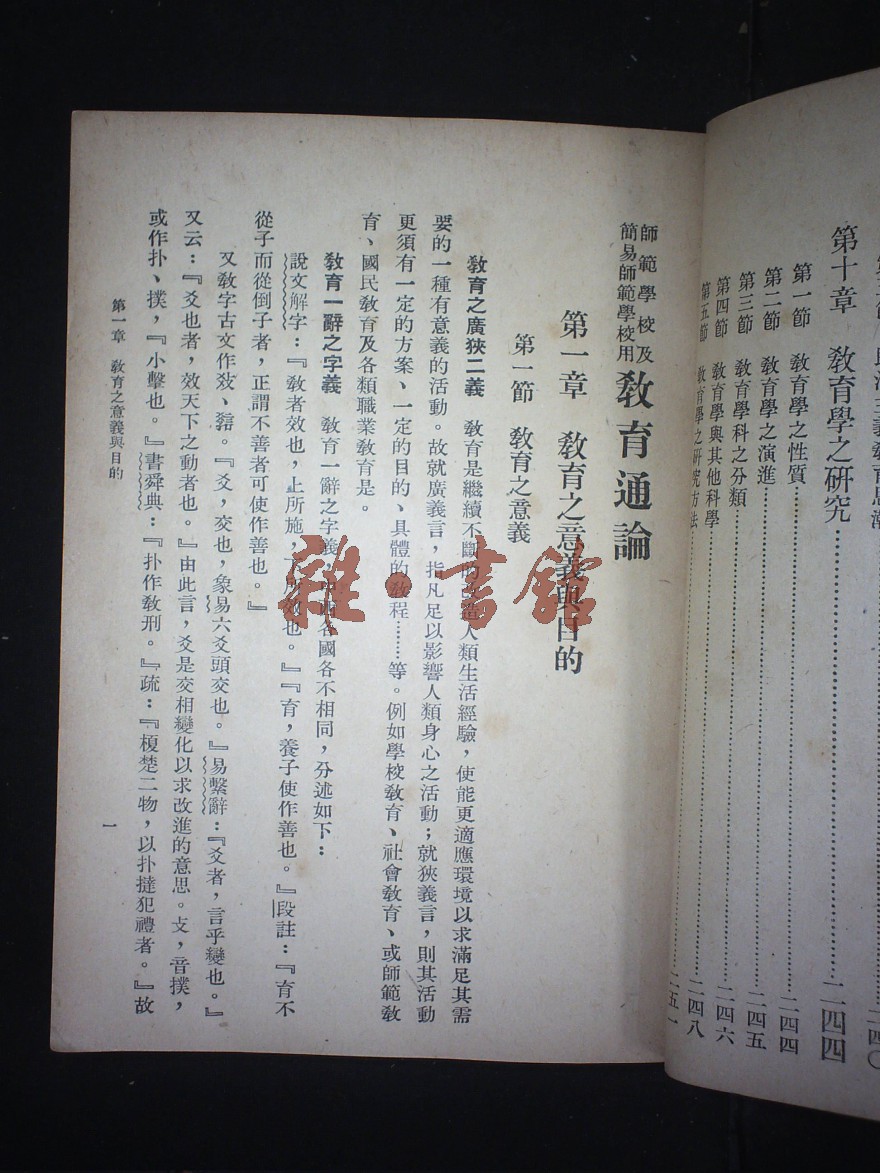 第十章　敎育學之硏究……二四四
第一節　敎育學之性質……二四四
第二節　敎育學之演進……二四五
第三節　敎育學科之分類……二四六
第四節　敎育學與其他科學……二四八
第五節　敎育學之硏究方法……二五一
師範學校及
簡易師範學校用
敎育通論
第一章　敎育之意義與目的
第一節　敎育之意義
敎育之廣狹二義　敎育是繼續不斷的改造人類生活經驗，使能更適應環境以求滿足其需
要的一種有意義的活動。故就廣義言，指凡足以影響人類身心之活動；就狹義言，則其活動
更須有一定的方案、一定的目的、具體的敎程……等。例如學校敎育、社會敎育、或師範敎
育、國民敎育及各類職業敎育是。
敎育一辭之字義　敎育一辭之字義，中西各國各不相同，分述如下：
說文解字：『敎者效也，上所施，下所效也。』『育，養子使作善也。』段註：『育不
從子而從倒子者，正謂不善者可使作善也。』
又敎字古文作𢼂、𤕝。『爻，交也，象易六爻頭交也。』易繫辭：『爻者，言乎變也。』
又云：『爻也者，效天下之動者也。』由此言，爻是交相變化以求改進的意思。攴，音撲，
或作扑、撲，『小擊也。』書舜典：『扑作敎刑。』疏：『榎楚二物，以扑撻犯禮者。』故
第一章　敎育之意義與目的
一
雜·書館